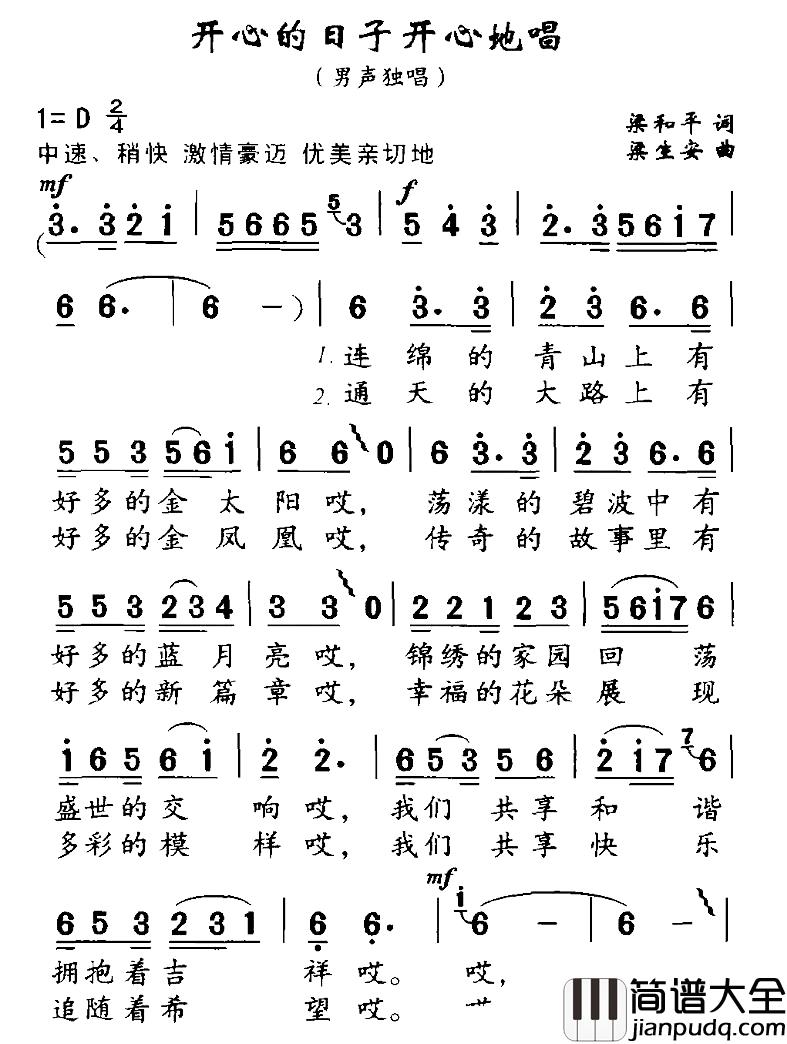 开心的日子开心地唱
（男声独唱）
1=D 2/4
梁和平 词
中速、稍快 激情豪迈 优美亲切地
梁生安 曲
mf f
(3. 3 2 1 | 5 6 6 5 5 3 | 5 4 3 | 2. 3 5 6 1 7 |
6 6. | 6 －) | 6 3. 3 | 2 3 6. 6 |
1.连绵的青山上有
2.通天的大路上有
5 5 3 5 6 1 | 6 6 0 | 6 3. 3 | 2 3 6. 6 |
好多的金太阳哎，荡漾的碧波中有
好多的金凤凰哎，传奇的故事里有
5 5 3 2 3 4 | 3 3 0 | 2 2 1 2 3 | 5 6 1 7 6 |
好多的蓝月亮哎，锦绣的家园回荡
好多的新篇章哎，幸福的花朵展现
1 6 5 6 1 | 2 2. | 6 5 3 5 6 | 2 1 7 7 6 |
盛世的交响哎，我们共享和谐
多彩的模样哎，我们共享快乐
mf
6 5 3 2 3 1 | 6 6. | 1 6 － | 6 － |
拥抱着吉祥哎。哎，
追随着希望哎。
简谱大全
jianpudq.com